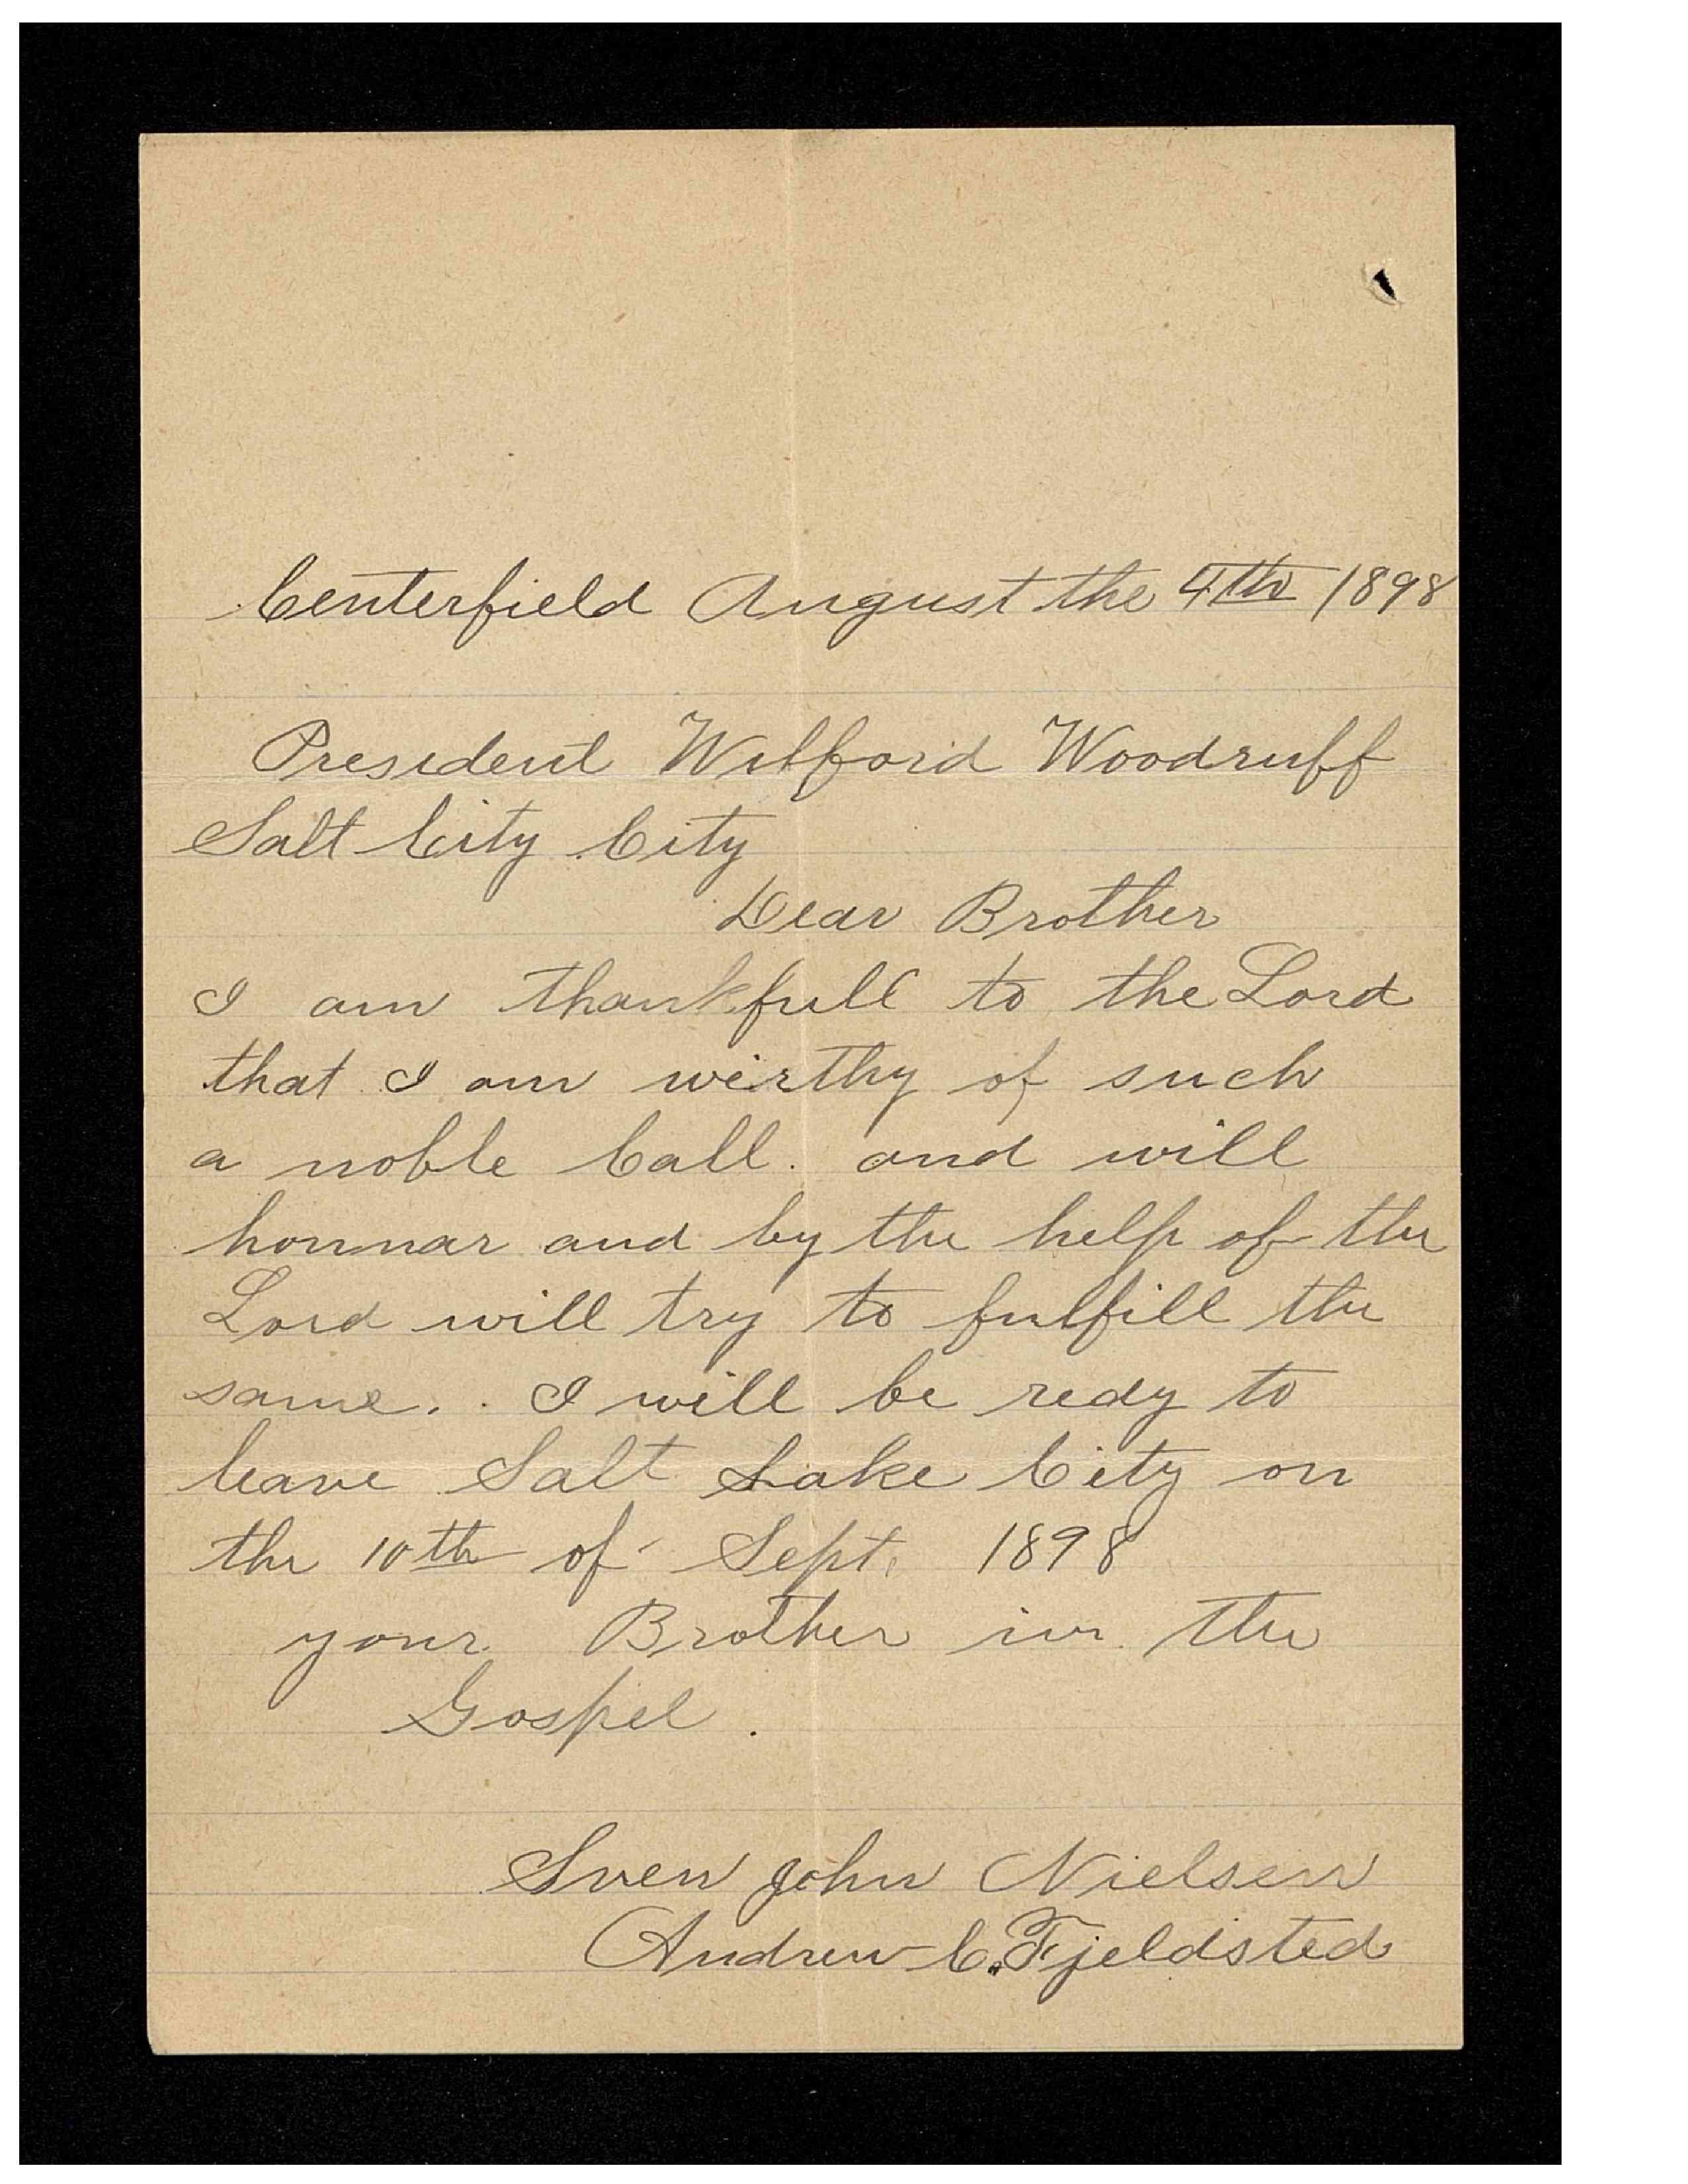 Centerfield August the 4th 1898
President Wilford Woodruff
Salt City City
Dear Brother
I am thankfull to the Lord
that I am wirthy of such
a noble Call. and will
honnar and by the help of the
Lord will try to fulfill the
same. I will be redy to
leave Salt Lake City on
the 10th of Sept. 1898
your Brother in the
Gospel.
Sven John Nielsen
Andrew C. Fjeldsted